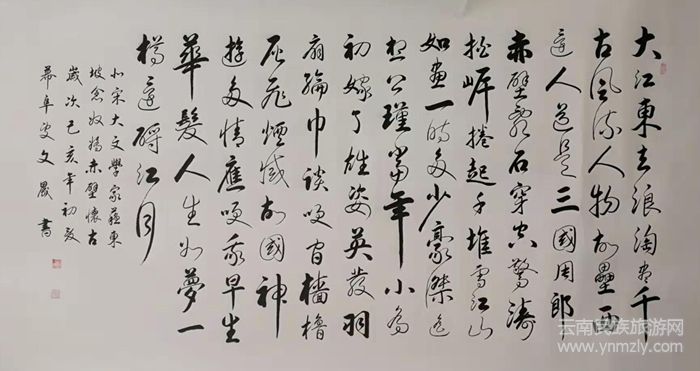 大江東去浪淘盡千
古風流人物故壘西
邊人道是三國周郎
赤壁亂石穿空驚濤
拍岸捲起千堆雪江山
如畫一時多少豪傑遙
想公瑾當年小喬
初嫁了雄姿英發羽
扇綸巾談笑間檣櫓
灰飛煙滅故國神
遊多情應笑我早生
華髮人生如夢一
樽還酹江月
北宋大文學家蘇東
坡念奴嬌赤壁懷古
歲次己亥年初夏
幕阜叟文嚴書
云南民族旅游网
www.ynmzly.com